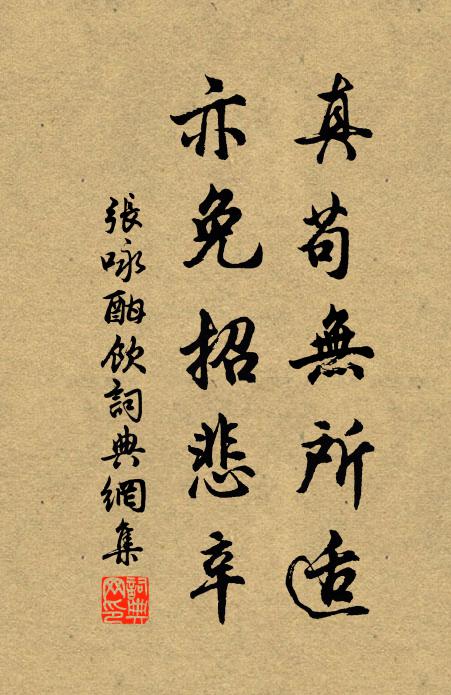 真苟無所适
亦免招悲辛
張咏酣飲詞典網集
詞典网印